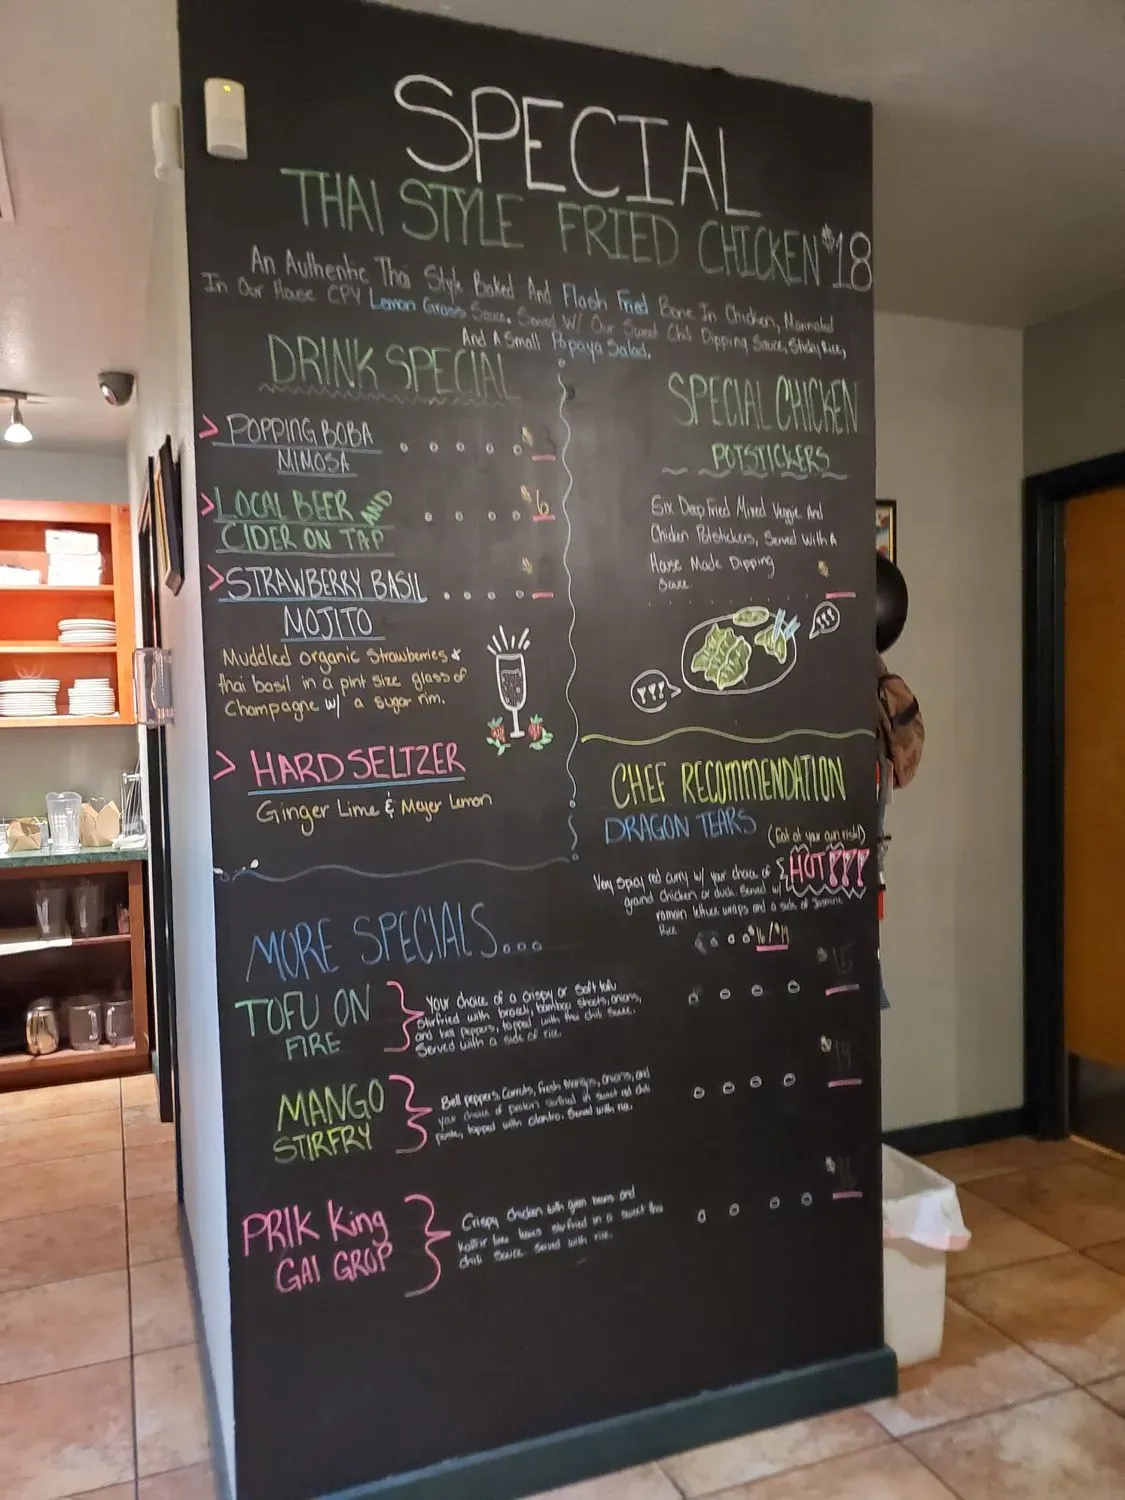 SPECIAL
THAI STYLE FRIED CHICKEN $18
An Authentic Thai Style Baked And Flash Fried Bone In Chicken, Marinated
In Our House CPY Lemon Grass Sauce. Served W/ Our Sweet Chili Dipping Sauce, Sticky Rice,
And A Small Papaya Salad.
DRINK SPECIAL
> POPPING BOBA
MIMOSA
$
> LOCAL BEER AND
CIDER ON TAP
$6
> STRAWBERRY BASIL
MOJITO
$
Muddled organic strawberries &
thai basil in a pint size glass of
Champagne w/ a sugar rim.
> HARD SELTZER
Ginger Lime & Meyer Lemon
SPECIAL CHICKEN
POTSTICKERS
Six Deep Fried Mixed Veggie And
Chicken Potstickers, Served With A
House Made Dipping
Sauce.
$
!!!
???
CHEF RECOMMENDATION
DRAGON TEARS
(Eat at your own risk!)
HOT!!!
Very Spicy red curry w/ your choice of
ground chicken or duck served w/
romain lettuce wraps and a side of Jasmine
Rice
$16/$19
MORE SPECIALS...
TOFU ON
FIRE
Your choice of a crispy or soft tofu
stirfried with brocoli, bamboo shoots, onions,
and bell peppers, topped with thai chili sauce.
Served with a side of rice.
$15
MANGO
STIRFRY
Bell peppers, Carrots, fresh mangos, onions, and
your choice of protein stirfried in sweet red chili
paste, topped with cilantro. Served with rice.
$14
PRIK King
GAI GROP
Crispy chicken with green beans and
kaffir lime leaves stirfried in a sweet thai
chili sauce served with rice.
$